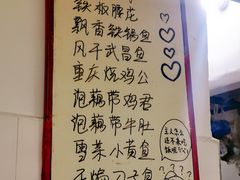 铁板腰花
飘香铁锅鱼
风干武昌鱼
重庆烧鸡公
泡藕带鸡君
泡藕带牛肚
雪菜小黄鱼
主人怎么
还不来吃